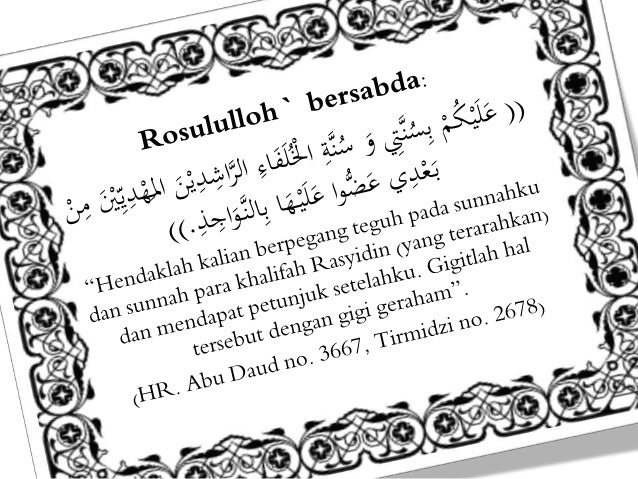 Rosululloh` bersabda:
(( عَلَيْكُمْ بِسُنَّتِيْ وَ سُنَّةِ الْخُلَفَاءِ الرَّاشِدِيْنَ الْمَهْدِيِّيْنَ مِنْ
بَعْدِي عَضُّوا عَلَيْهَا بِالنَّوَاجِذِ.))
“Hendaklah kalian berpegang teguh pada sunnahku
dan sunnah para khalifah Rasyidin (yang terarahkan)
dan mendapat petunjuk setelahku. Gigitlah hal
tersebut dengan gigi geraham”.
(HR. Abu Daud no. 3667, Tirmidzi no. 2678)